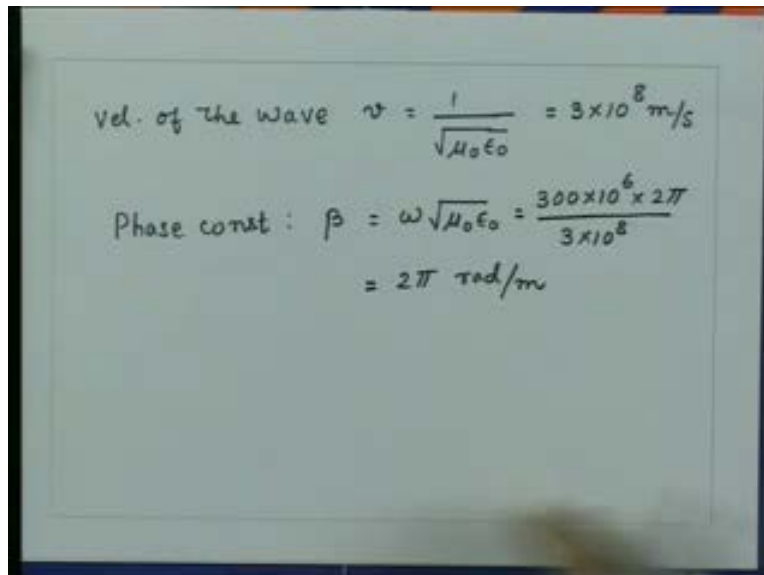 vel. of the wave v = 1/√μ₀ϵ₀ = 3×10⁸ m/s
Phase const : β = ω√μ₀ϵ₀ = 300×10⁶×2π / 3×10⁸
= 2π rad/m